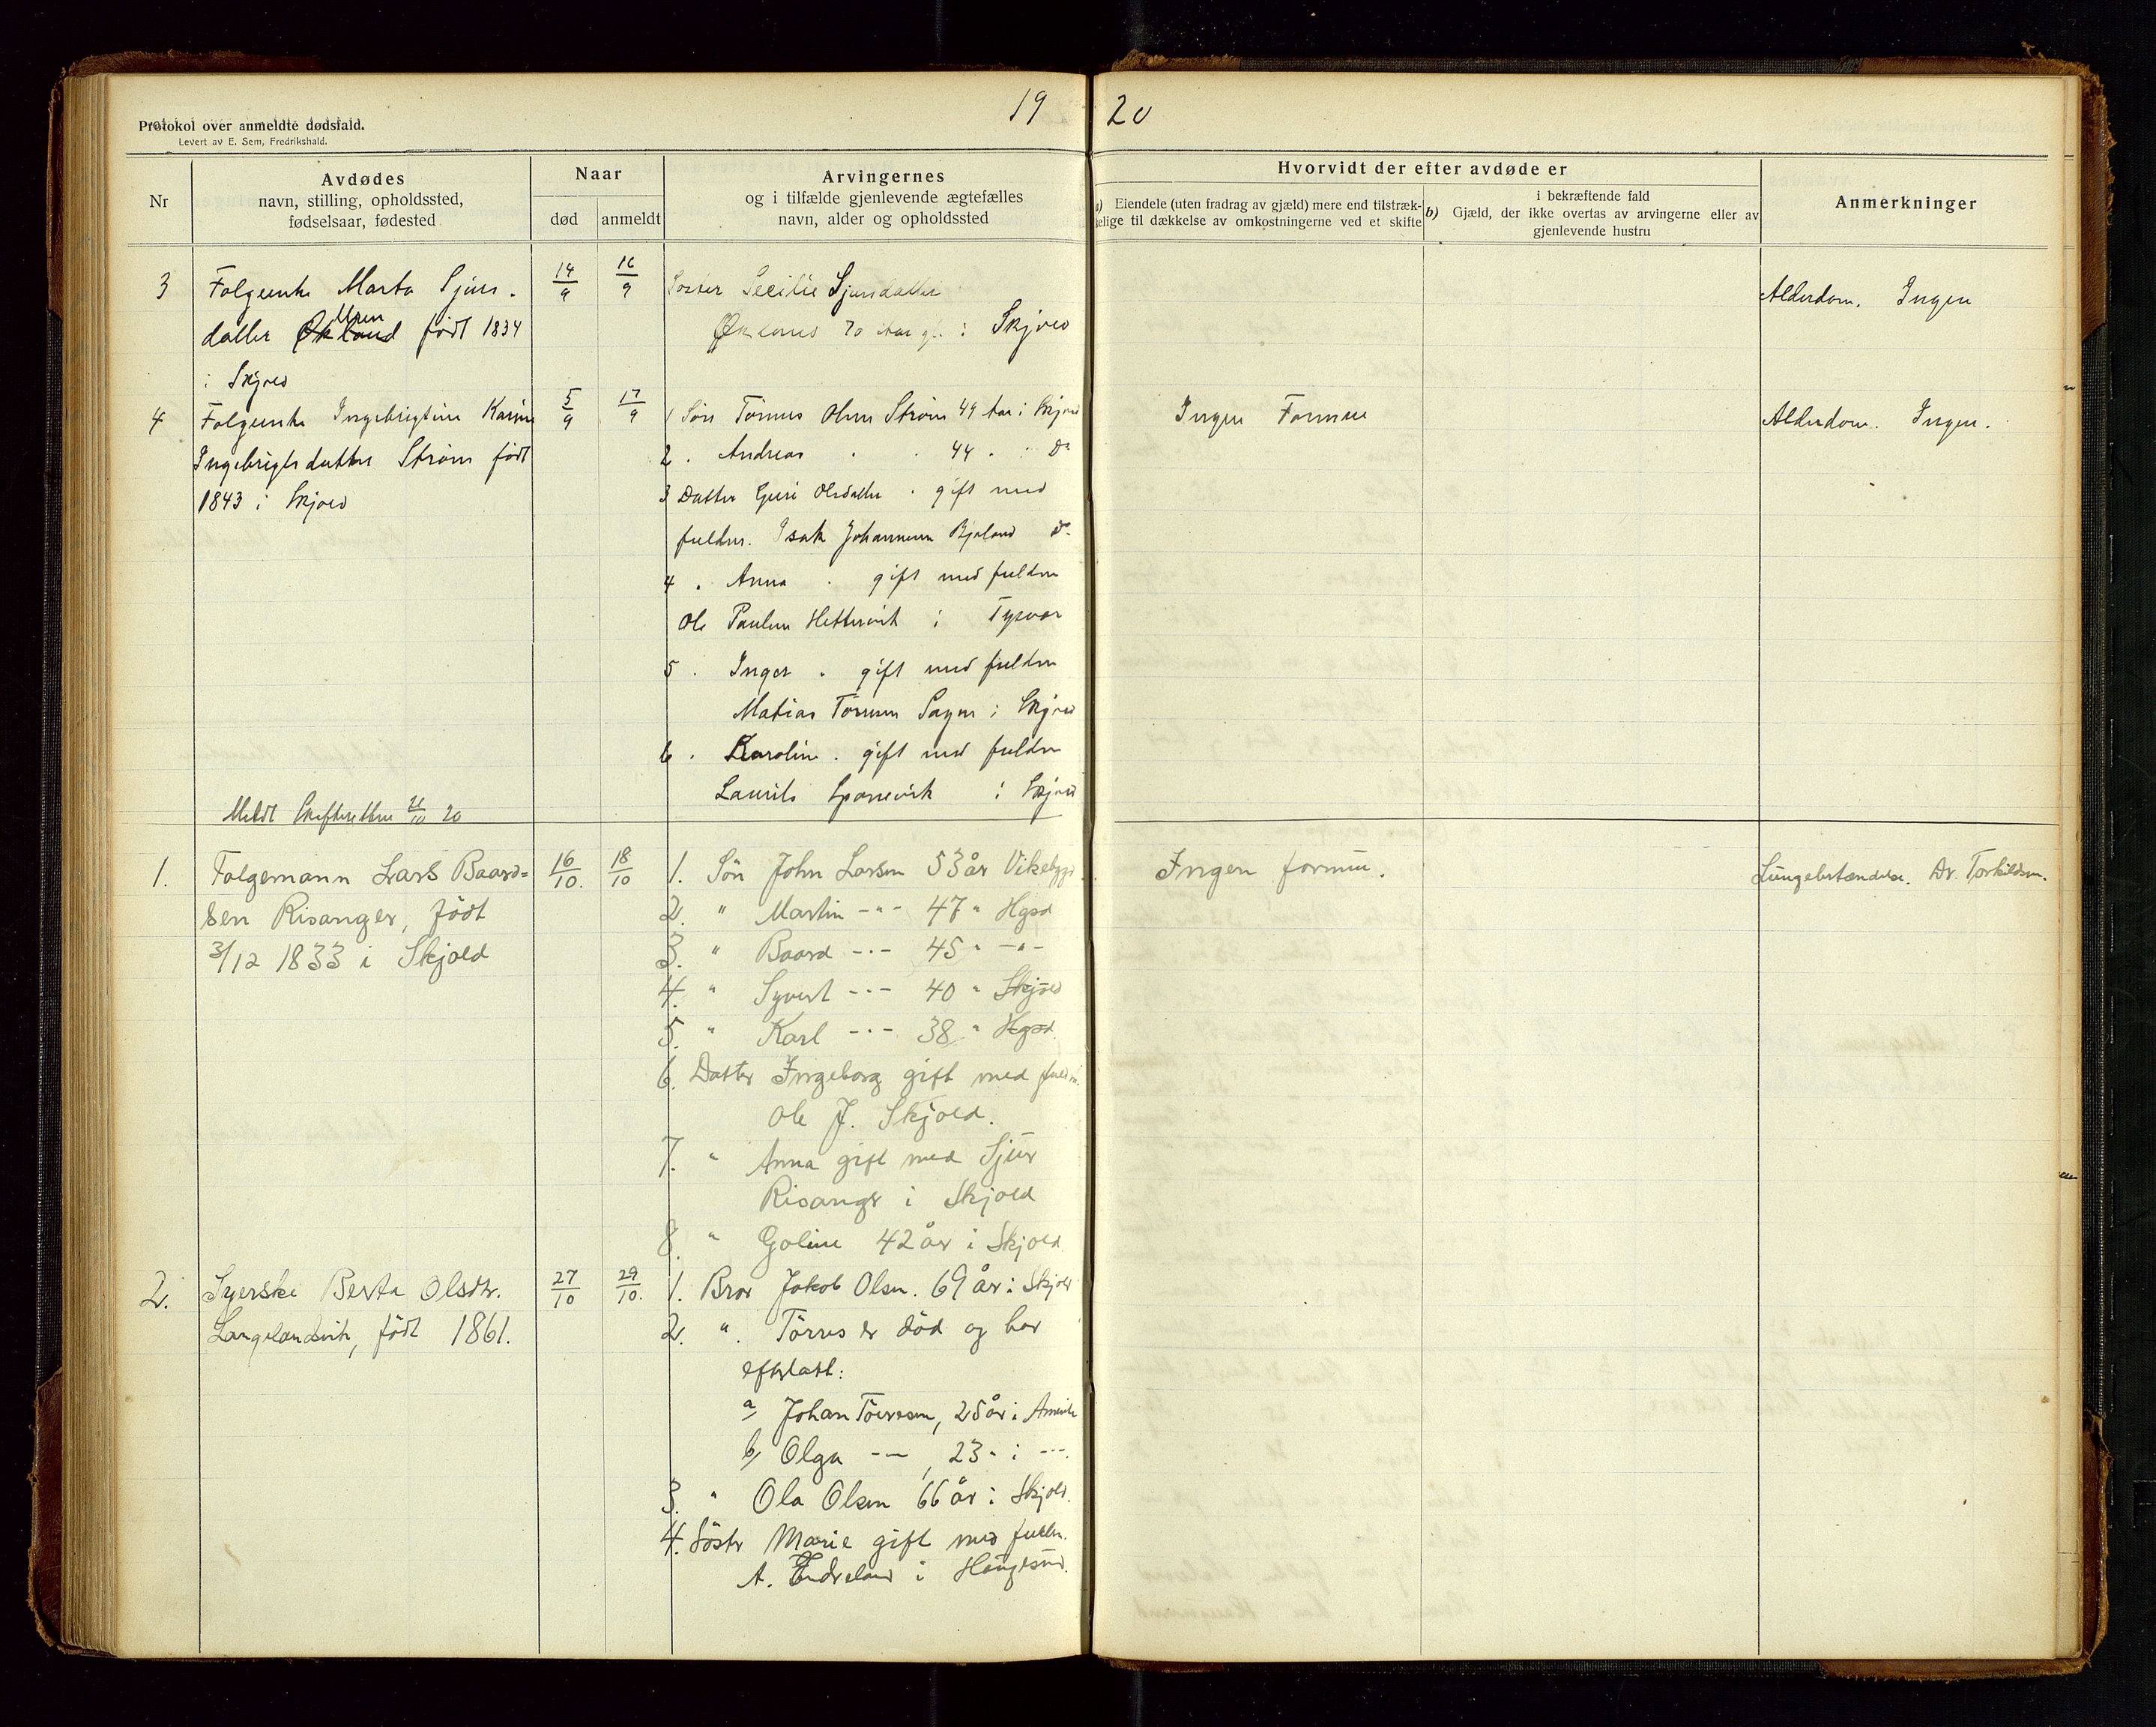 19
20
Protokol over anmeldte dødsfald.
Levert av E. Sem, Fredrikshald.
Nr
Avdødes
navn, stilling, opholdssted,
fødselsaar, fødested
Naar
død
anmeldt
Arvingernes
og i tilfælde gjenlevende ægtefælles
navn, alder og opholdssted
Hvorvidt der efter avdøde er
a) Eiendele (uten fradrag av gjæld) mere end tilstræk-
kelige til dækkelse av omkostningerne ved et skifte
i bekræftende fald
b) Gjæld, der ikke overtas av arvingerne eller av
gjenlevende hustru
Anmerkninger
3 Folgeenke Marta Sjurs-
datter Økland født 1834
i Skjold
14/9 16/9
Søster Secilie Sjursdatter
70 Aar i Skjold
Alderdom. Ingen
4 Folgeenke Ingebrigtine Karine
Ingebrigtsdatter Strøm født
1843 i Skjold
5/9 17/9
1 Søn Tørres Olsen Strøm 49 Aar i Skjold
2 . Andreas . . 44 . . Do
3 Datter Guri Olsdatter . gift med
fuldm. Isak Johannesen Bjoland Do
4 . Anna . gift med fuldm
Ole Paulsen Hettervik i Tysvær
5 . Inger . gift med fuldm
Matias Tørresen i Skjold
6 . Karoline . gift med fuldm
Laurits Sponevik i Skjold
Ingen Formue
Alderdom. Ingen.
Meldt Skifteretten 21/10 20
1. Folgemann Lars Baard=
sen Risanger, født
3/12 1833 i Skjold
16/10. 18/10
1. Sön John Larsen 53 år Vikebygd
2. " Martin -"- 47 " Hgsd
3. " Baard -"- 45 " -"-
4. " Syvert -"- 40 " Skjold
5. " Karl -"- 38 " Hgsd.
6. Datter Ingeborg gift med fuldm.
Ole J. Skjold.
7. " Anna gift med Sjur
Risanger i Skjold
8. " Goline 42 år i Skjold
Ingen formue.
Lungebetændelse. Dr. Torkildsen.
2. Syerske Berta Olsdtr.
Langelandsvik, født 1861.
27/10 29/10.
1. Bror Jakob Olsen. 69 år i Skjold
2. " Törres er död og har
efterlatt:
a, Johan Törresen, 25 år i Amerika
b, Olga -"-, 23 " i -"-.
3. " Ola Olsen 66 år i Skjold.
4. Söster Marie gift med fuldm.
A. Endreland i Haugesund.